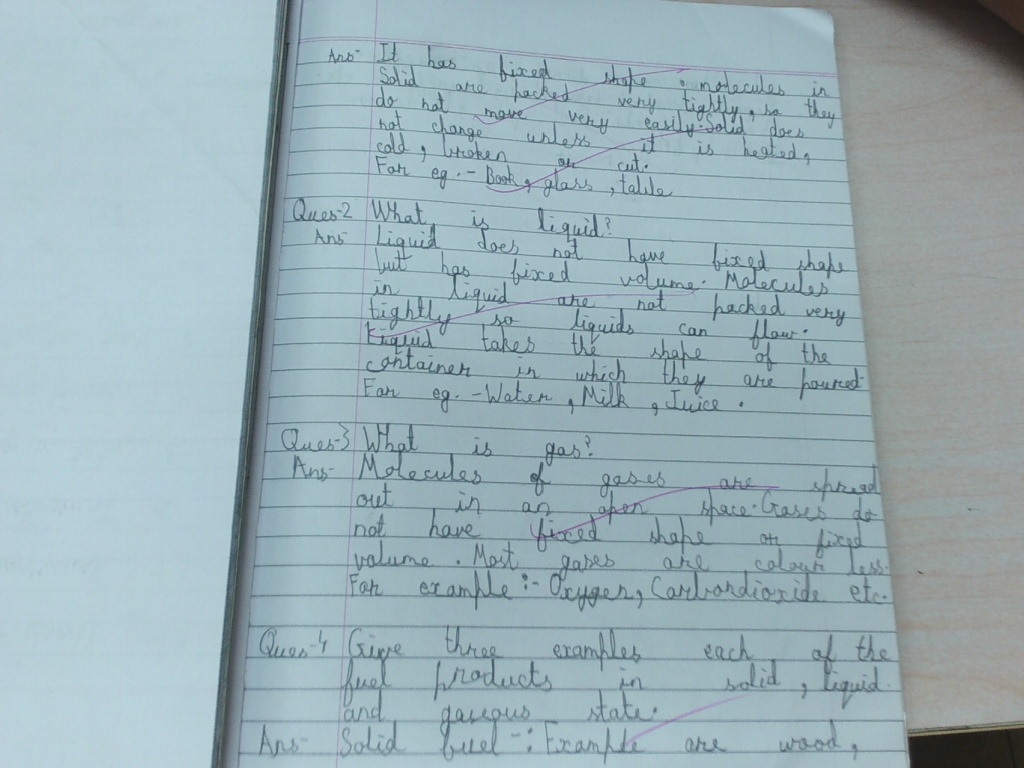 Ans- It has fixed shape . molecules in
Solid are packed very tightly, so they
do not move very easily. Solid does
not change unless it is heated,
cold, broken or cut.
For eg. - Book, glass, table
Ques-2 What is liquid?
Ans- Liquid does not have fixed shape
but has fixed volume. Molecules
in liquid are not packed very
tightly so liquids can flow.
Liquid takes the shape of the
container in which they are poured
For eg. - Water, Milk, Juice.
Ques-3 What is gas?
Ans- Molecules of gases are spread
out in an open space. Gases do
not have fixed shape or fixed
volume. Most gases are colour less.
For example :- Oxygen, Carbondioxide etc.
Ques-4 Give three examples each of the
fuel products in solid, liquid
and gaseous state.
Ans- Solid fuel -: Example are wood,